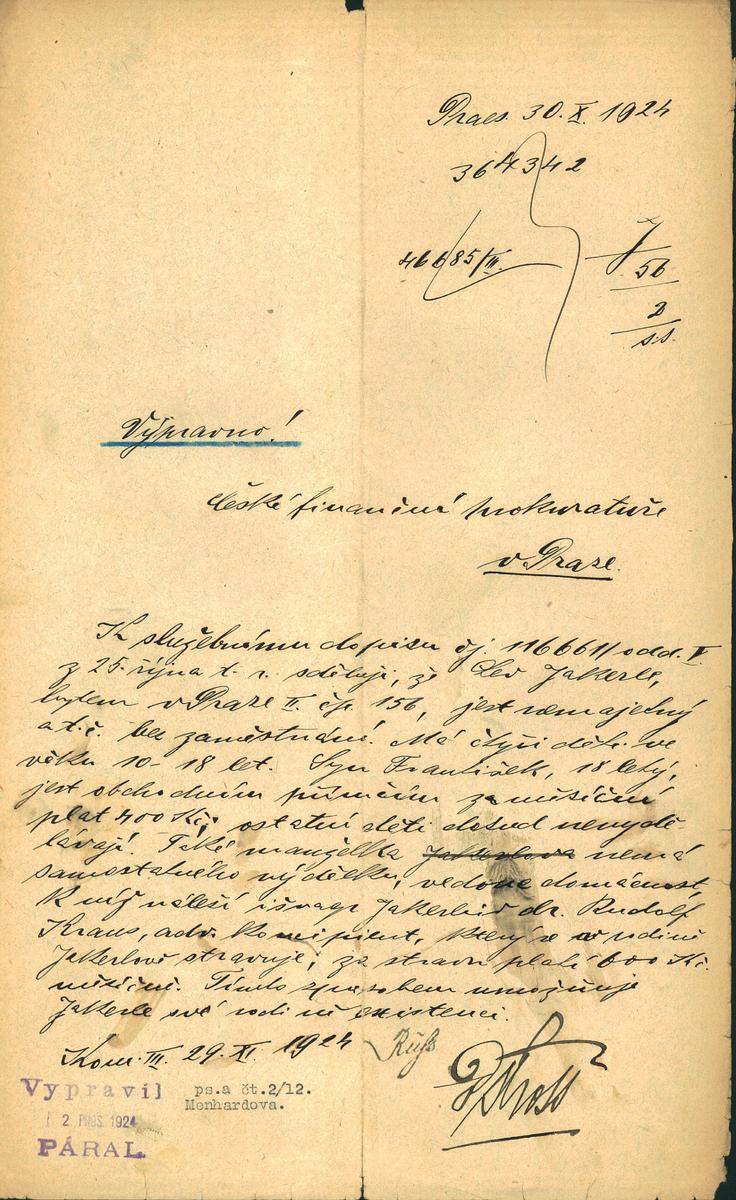 Praes. 30. X. 1924
364342
46685/III.
56
2
s.s.
Výpravno!
české finanční prokuratuře
v Praze.
K služebnímu dopisu čj. 116661/odd. V
z 25. října t. r. sděluji, že Lev Jakerle,
bytem v Praze II. čp. 156, jest nemajetný
a t. č. bez zaměstnání. Má čtyři děti ve
věku 10-18 let. Syn František, 18 letý,
jest obchodním příručím za měsíční
plat 400 Kč, ostatní děti dosud nevydě-
lávají. Také manželka Jakerlova nemá
samostatného výdělku, vedouc domácnost,
k níž náleží i švagr Jakerlův dr. Rudolf
Kraus, adv. koncipient, který se v rodině
Jakerlově stravuje, za stravu platí 600 Kč.
měsíčně. Tímto způsobem umožňuje
Jakerle své rodině existenci.
Kom. III. 29. XI. 1924
Vypravil
2 PROS. 1924
PÁRAL
ps.a čt.2/12.
Menhardova.